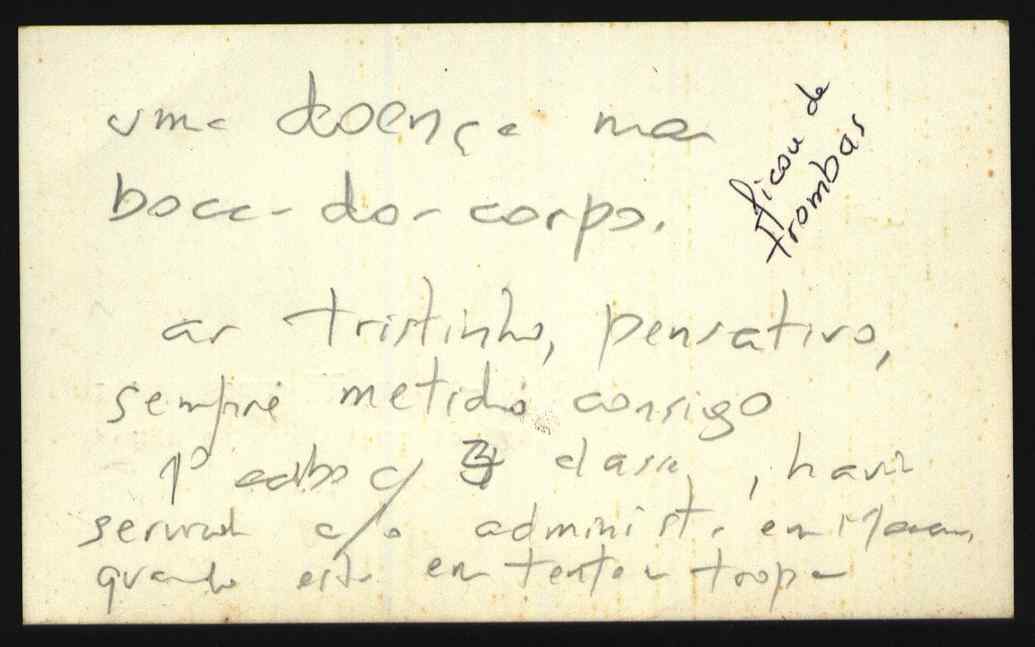 uma doença na
boca-do-corpo.
ficou de
trombas
ar tristinho, pensativo,
sempre metido consigo
1º cabo c/ classe, havia
servido c/o administ. em
quando este en tentou tropa